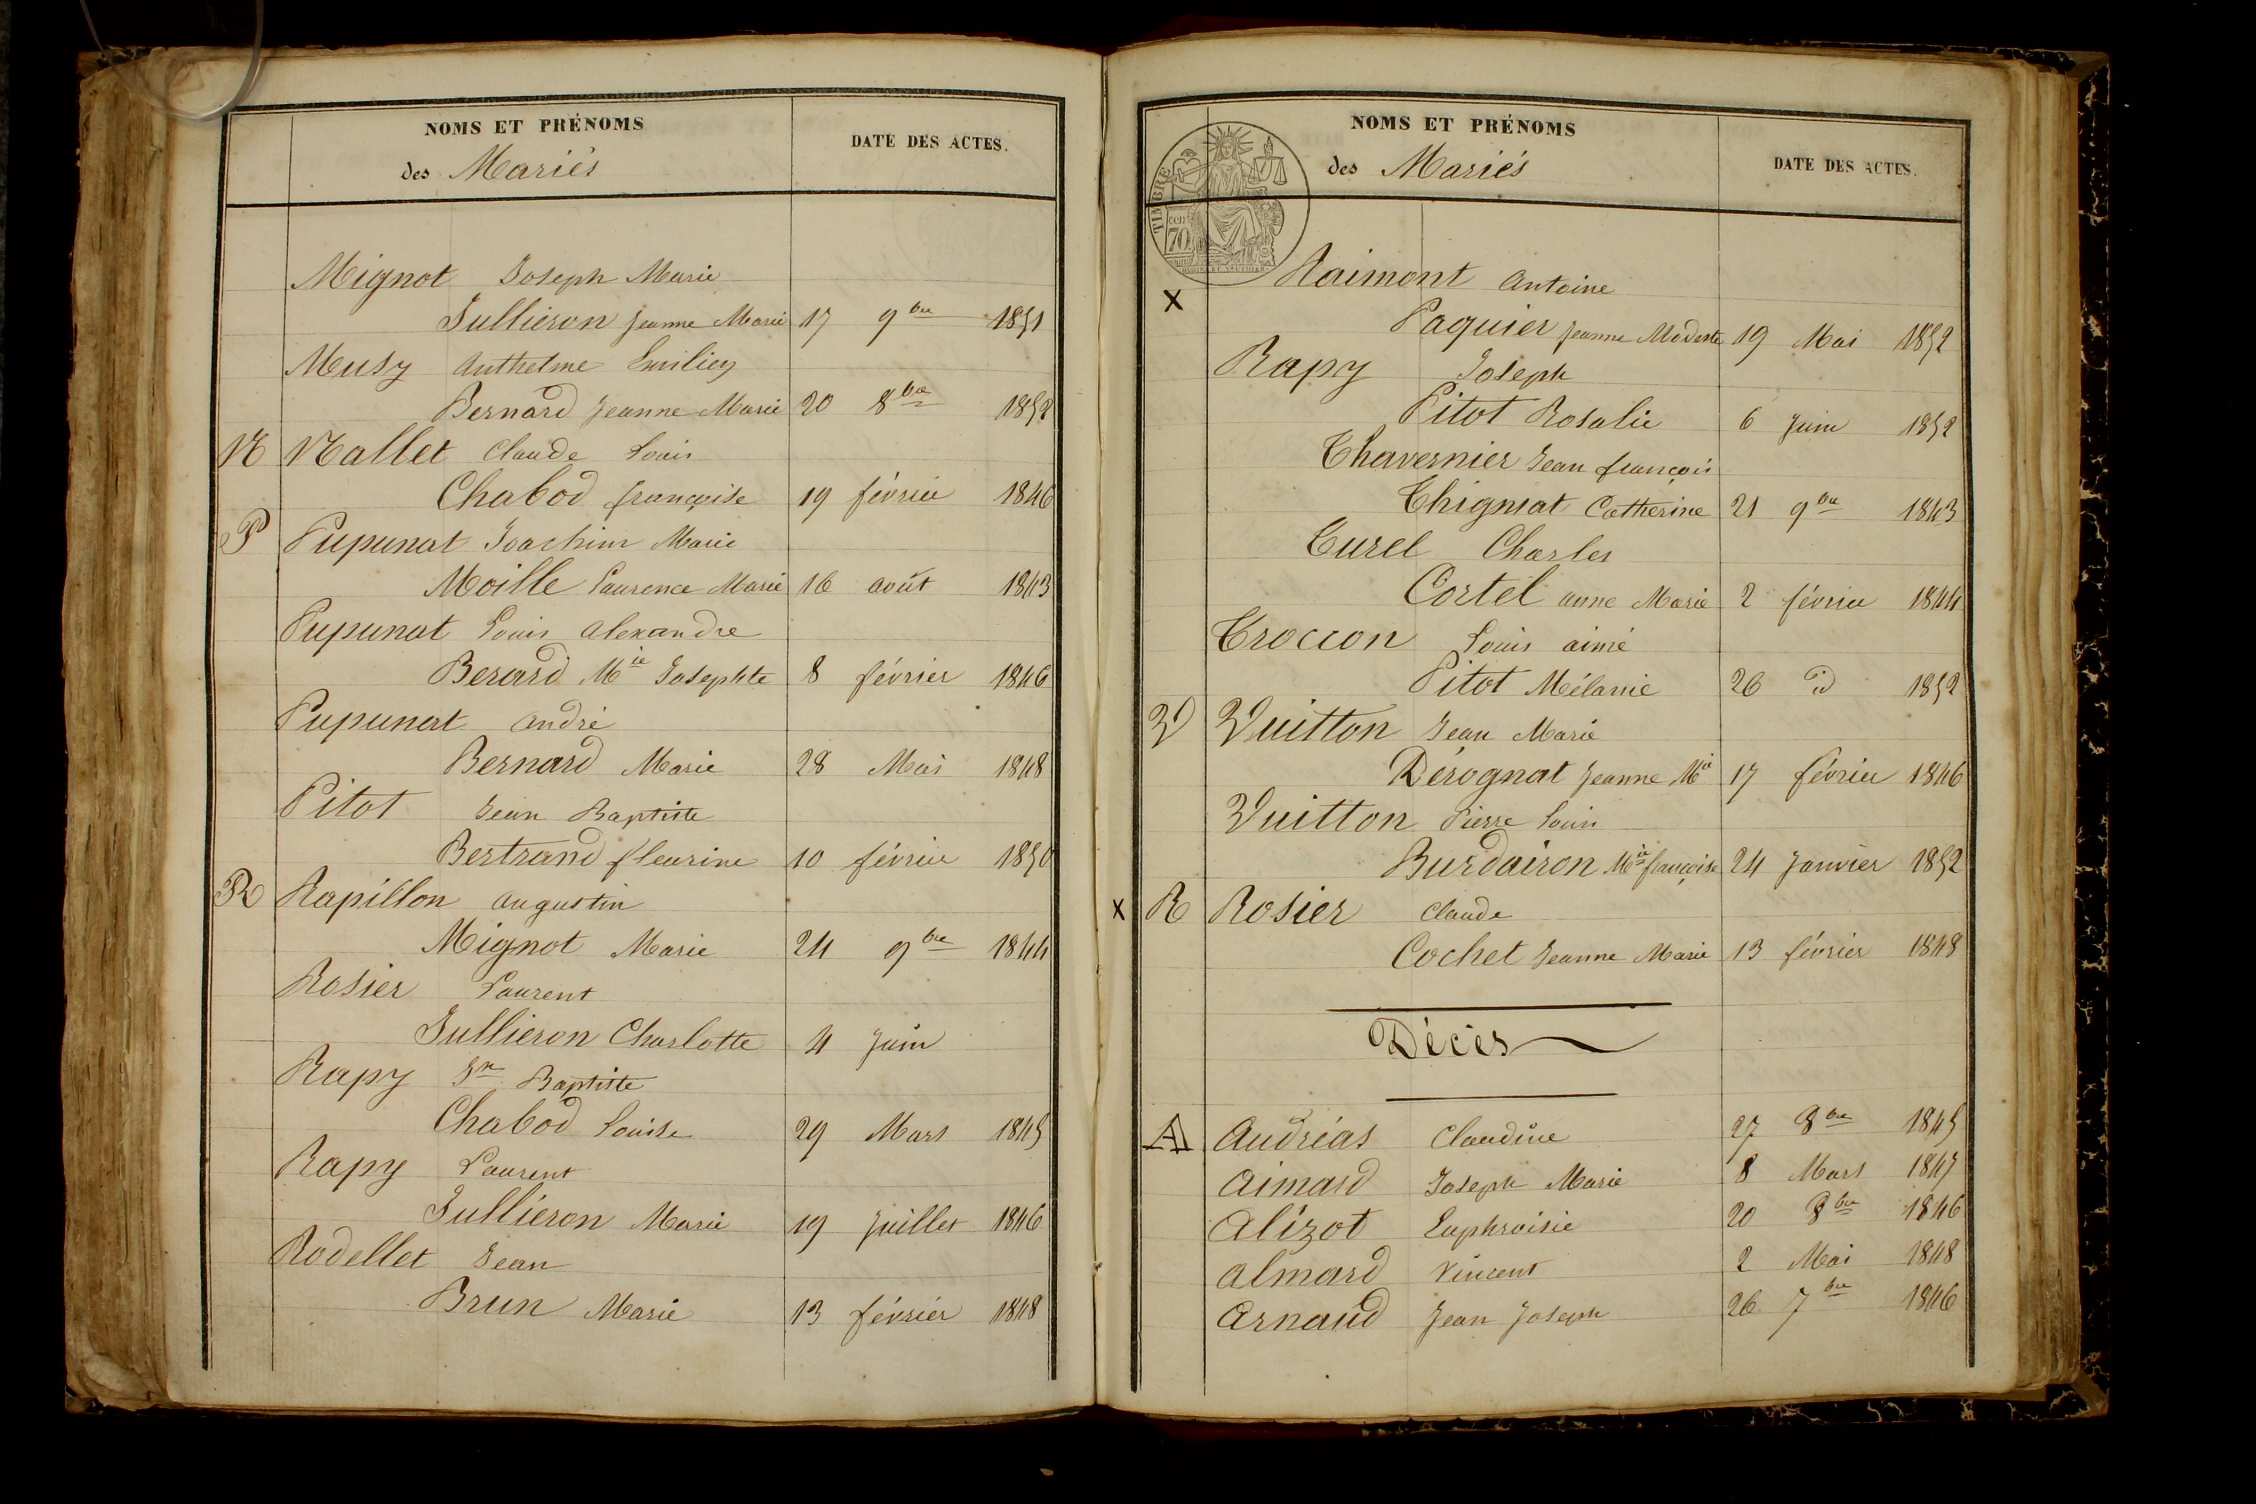 NOMS ET PRÉNOMS
des Mariés
DATE DES ACTES.
Mignot Joseph Marie
Jullieron Jeanne Marie 17 9bre 1851
Musy Anthelme Emilien
Bernard Jeanne Marie 20 8bre 1852
N Nallet Claude Louis
Chabod françoise 19 février 1846
P Pupunat Joachim Marie
Moille Laurence Marie 16 août 1843
Pupunat Louis Alexandre
Berard Mie Josephte 8 février 1846
Pupunat André
Bernard Marie 28 Mai 1848
Pitot Jean Baptiste
Bertrand fleurine 10 février 1850
R Rapillon Augustin
Mignot Marie 24 9bre 1844
Rosier Laurent
Jullieron Charlotte 4 Juin
Rapy Jn Baptiste
Chabod Louise 29 Mars 1845
Rapy Laurent
Jullieron Marie 19 Juillet 1846
Rodellet Jean
Brun Marie 13 février 1848
NOMS ET PRÉNOMS
des Mariés
DATE DES ACTES.
TIMBRE
cen
70
Raimont Antoine
x
Paquier Jeanne Modeste 19 Mai 1852
Rapy Joseph
Pitot Rosalie 6 Juin 1852
Thavernier Jean françois
Thigniat Catherine 21 9bre 1843
Turel Charles
Cortel anne Marie 2 février 1844
Troccon Louis aimé
Pitot Mélanie 26 id 1852
V Vuitton Jean Marie
Dérognat Jeanne Mie 17 février 1846
Vuitton Pierre Louis
Burdairon Mie françoise 24 Janvier 1852
x R Rosier Claude
Cochet Jeanne Marie 13 février 1848
Décès
A Andréas Claudine 27 8bre 1845
Aimard Joseph Marie 8 Mars 1847
Alizot Euphroisie 20 8bre 1846
Almard Vincent 2 Mai 1848
Arnaud Jean Joseph 26 7bre 1846